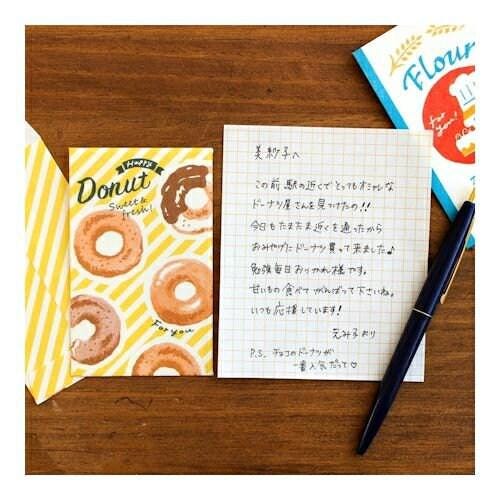 Happy
Donut
Sweet &
fresh!
For you
美紗子へ
この前駅の近くでとってもオシャレな
ドーナツ屋さんを見つけたの!!
今日もたまたま近くを通ったから
おみやげにドーナツ買って来ました♪
勉強毎日おつかれ様です。
甘いもの食べてがんばって下さいね。
いつも応援しています!
えみ子より
P.S. チョコのドーナツが
一番人気だって♡
Flour
For you!